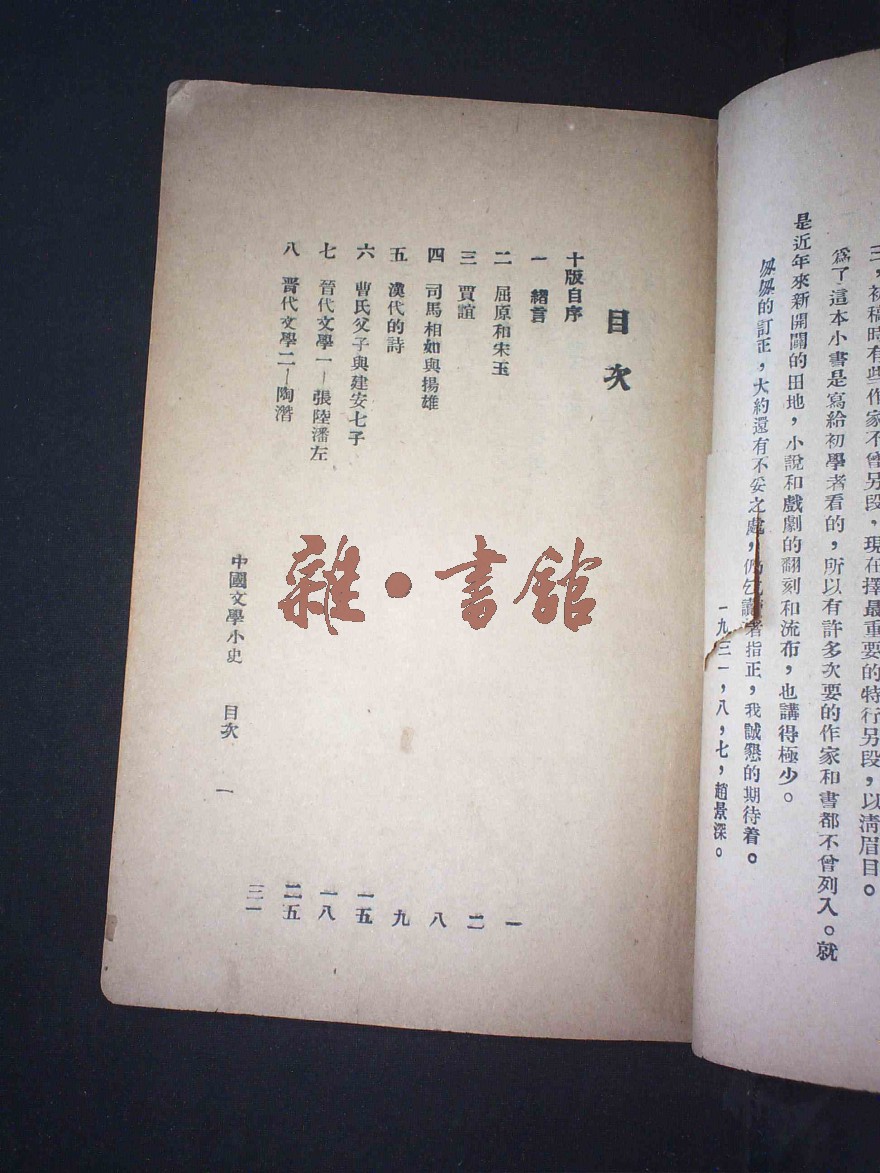 三，初稿時有些作家不曾另段，現在擇最重要的特行另段，以清眉目。
為了這本小書是寫給初學者看的，所以有許多次要的作家和書都不曾列入。就
是近年來新開闢的田地，小說和戲劇的翻刻和流布，也講得極少。
匆匆的訂正，大約還有不妥之處，仍乞讀者指正，我誠懇的期待着。
一九三一，八，七，趙景深。
目次
十版自序
一 緒言 一
二 屈原和宋玉 二
三 賈誼 八
四 司馬相如與揚雄 九
五 漢代的詩 一五
六 曹氏父子與建安七子 一八
七 晉代文學一—張陸潘左 二五
八 晉代文學二—陶潛 三一
中國文學小史 目次 一
雜·書館